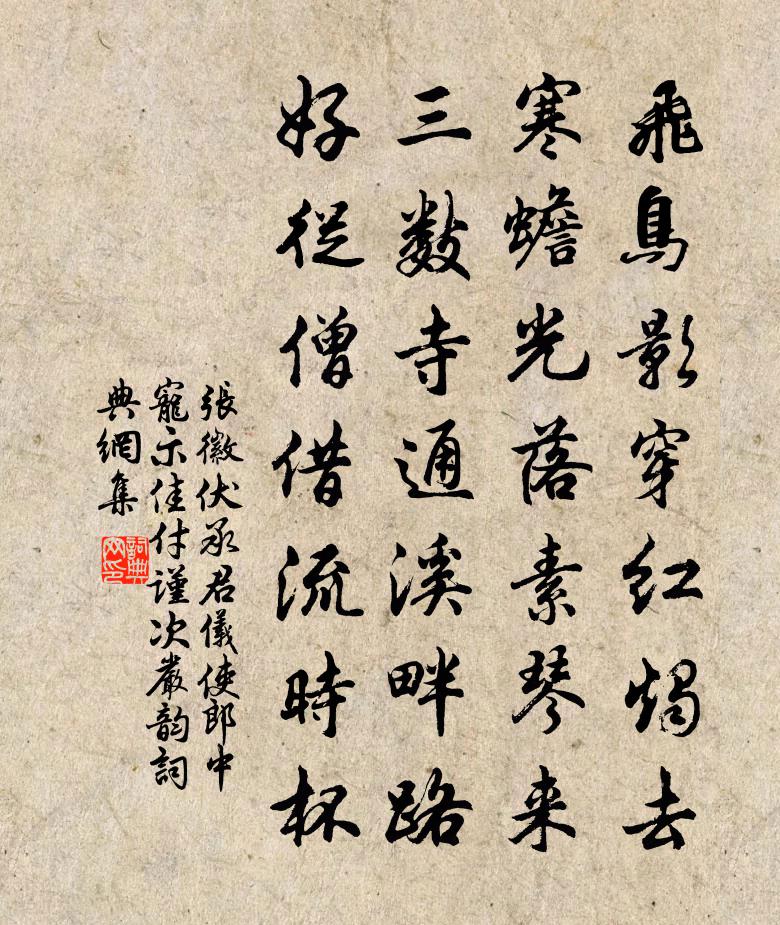 飛鳥影穿紅燭去
寒蟾光落素琴来
三數寺通溪畔路
好從僧借流時杯
張徽伏承君儀使郎中
寵示佳付謹次嚴韵詞
典網集
詞典網印